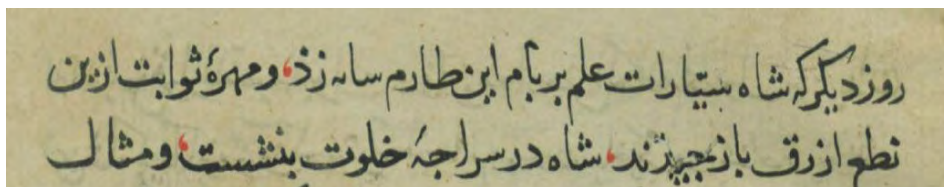 روز دیکر که شاه سیّارات علم بر بام این طارم سانه زذ، و مهرهٔ ثوابت ازین
نطع ازرق باز چیذند، شاه در سراجهٔ خلوت بنشست، و مثال